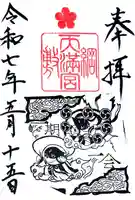 奉拝
綱敷
天満宮
令和七年五月十五日